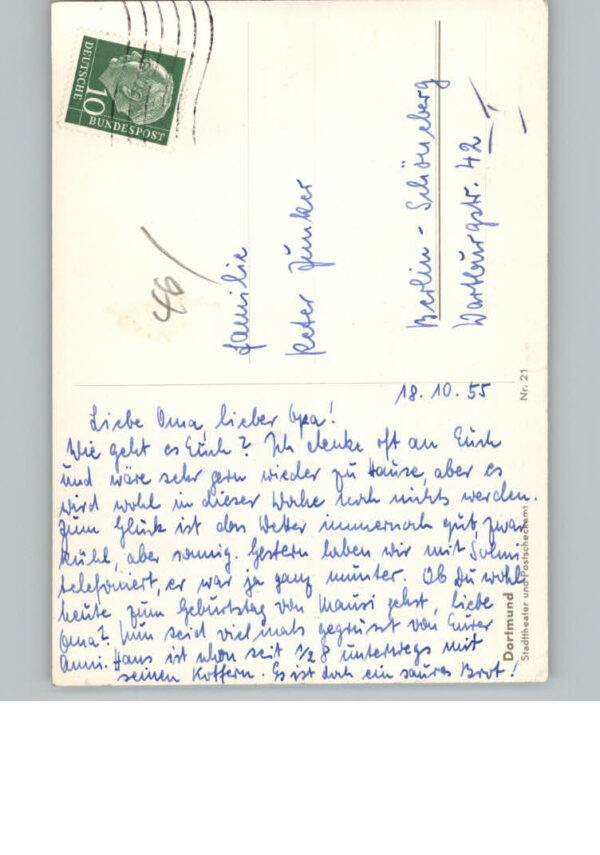 DEUTSCHE
10
BUNDESPOST
46
Familie
Peter Junker
Berlin - Schöneberg
Wartburgstr. 42
18.10.55
Liebe Oma, lieber Opa!
Wie geht es Euch? Ich denke oft an Euch
und wäre sehr gern wieder zu Hause, aber es
wird wohl in dieser Woche noch nichts werden.
Zum Glück ist das Wetter immernoch gut, zwar
kühl, aber sonnig. Gestern haben wir mit
telefoniert, er war ja ganz munter. Ob Du wohl
heute zum Geburtstag von Mausi gehst, liebe
Oma? Nun seid vielmals gegrüsst von Eurer
Anni. Hans ist schon seit 1/2 8 unterwegs mit
seinen Koffern. Es ist doch ein saures Brot!
Nr. 21
Dortmund
Stadttheater und Postscheckamt